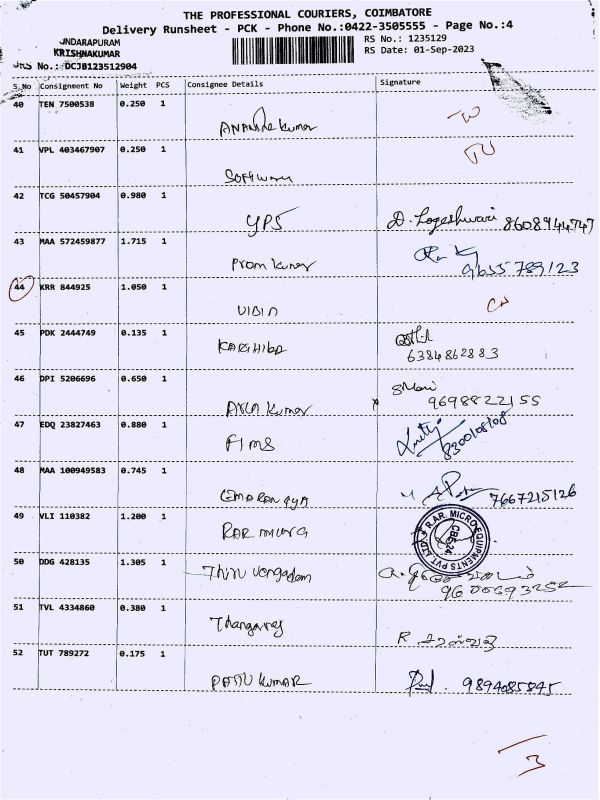 THE PROFESSIONAL COURIERS, COIMBATORE
Delivery Runsheet - PCK - Phone No.:0422-3505555 - Page No.:4
RS No.: 1235129
KRISHNAKUMAR
RS Date: 01-Sep-2023
No.: DCJB123512904
S.No Consignment No Weight PCS Consignee Details Signature
40 TEN 7500538 0.250 1
41 VPL 403467907 0.250 1
Software
42 TCG 50457904 0.980 1
YPS D. Logeshwari 8608944747
43 MAA 572459877 1.715 1
Prom Kumar 9655789123
44 KRR 844925 1.050 1
VIBIN
45 PDK 2444749 0.135 1
6384862883
46 DPI 5206696 0.650 1
Arun Kumar 9698822155
47 EDQ 23827463 0.880 1
FIMS 8300108108
48 MAA 100949583 0.745 1
7667215126
49 VLI 110382 1.200 1
RAR R.AR. MICRO EQUIPMENTS PVT. LTD. CBE-24
50 DDG 428135 1.305 1
51 TVL 4334860 0.380 1
Thangaraj R
52 TUT 789272 0.175 1
KUMAR 9894085845
3